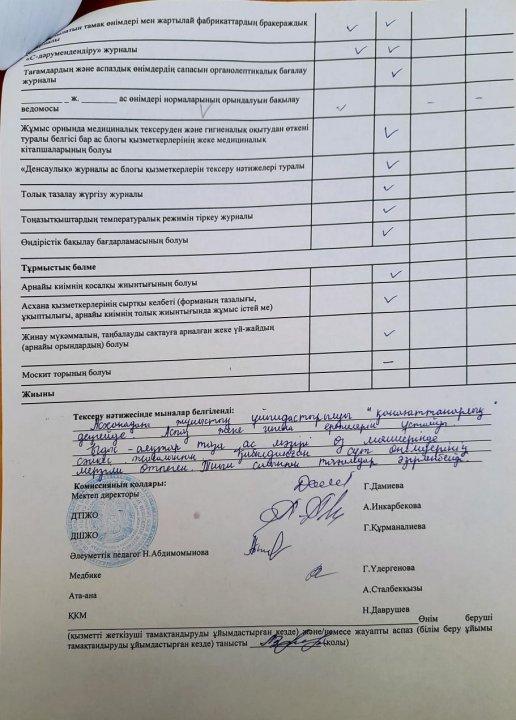 тамақ өнімдері мен жартылай фабрикаттардың бракераждық
журналы
«С-дәрумендендіру» журналы
Тағамдардың және аспаздық өнімдердің сапасын органолептикалық бағалау
журналы
_______ ж. _______ ас өнімдері нормаларының орындалуын бақылау
ведомосы
Жұмыс орнында медициналық тексеруден және гигиеналық оқытудан өткені
туралы белгісі бар ас блогы қызметкерлерінің жеке медициналық
кітапшаларының болуы
«Денсаулық» журналы ас блогы қызметкерлерін тексеру нәтижелері туралы
Толық тазалау жүргізу журналы
Тоңазытқыштардың температуралық режимін тіркеу журналы
Өндірістік бақылау бағдарламасының болуы
Тұрмыстық бөлме
Арнайы киімнің қосалқы жиынтығының болуы
Асхана қызметкерлерінің сыртқы келбеті (форманың тазалығы,
ұқыптылығы, арнайы киімнің толық жиынтығында жұмыс істей ме)
Жинау мүкәммалын, таңбалауды сақтауға арналған жеке үй-жайдың
(арнайы орындардың) болуы
Москит торының болуы
Жиыны
Тексеру нәтижесінде мыналар белгіленді:
Асханадағы жұмыстың ұйымдастырылуы "қанағаттанарлық"
деңгейде.
таза, ас мәзірі өз мөлшерінде
сүт өнімдерінің
мерзімі өтпеген.
Комиссияның қолдары:
Мектеп директоры Г.Дамиева
ДТІЖО А.Инкарбекова
ДШЖО Г.Құрманалиева
Әлеуметтік педагог Н.Абдимомынова
Медбике Г.Үдергенова
Ата-ана А.Сталбекқызы
ҚКМ Н.Даврушев
Өнім беруші
(қызметті жеткізуші тамақтандыруды ұйымдастырған кезде) және/немесе жауапты аспаз (білім беру ұйымы
тамақтандыруды ұйымдастырған кезде) танысты (қолы)